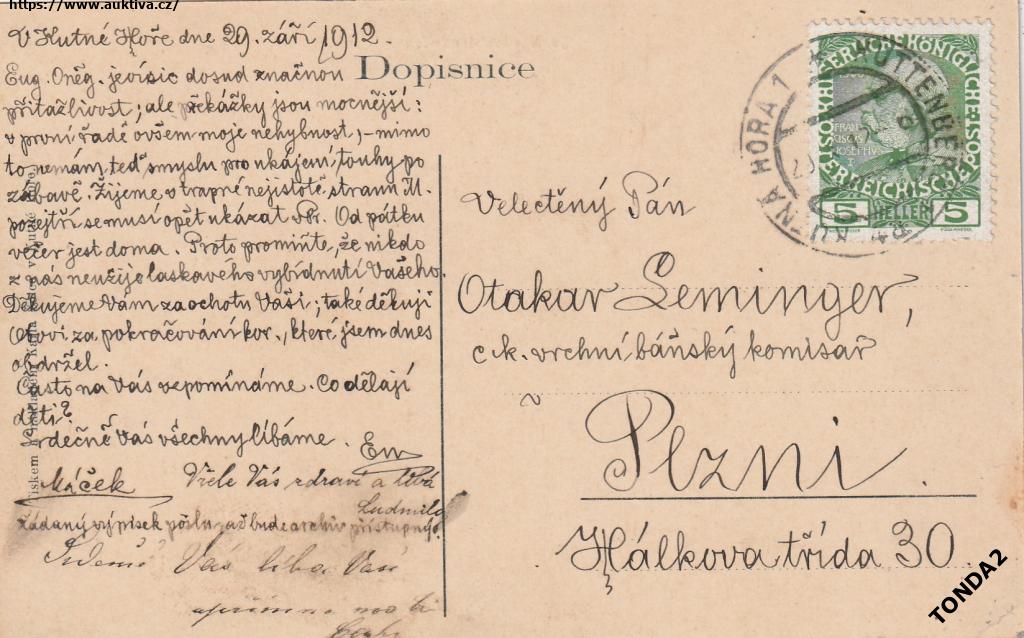 https://www.auktiva.cz/
V Kutné Hoře dne 29. září 1912.
Dopisnice
Eug. Oněg. jeví sic dosud značnou
přitažlivost; ale překážky jsou mocnější:
v první řadě ovšem moje nehybnost, - mimo
to nemám teď smyslu pro ukájení touhy po
zábavě. Žijeme v trapné nejistotě stranu M.
pozejtří se musí opět ukázat Od pátku
večer jest doma. Proto promiňte, že nikdo
z nás neužije laskavého vybídnutí Vašeho.
Děkujeme Vám za ochotu Vaši; také děkuji
Otovi za pokračování kor., které jsem dnes
obdržel.
Často na Vás vzpomínáme. Co dělají
děti?
Srdečně Vás všechny líbáme. Em
Máček
Vřele Vás zdraví a líbá
Ludmila
Žádaný výpisek pošlu, až bude archiv přístupný.
Vás líbá Vaše
KUTNÁ HORA 1
KUTTENBERG
KAISERLICHE KÖNIGLICHE
ÖSTERREICHISCHE POST
FRAN
CISCVS
IOSEPHVS
I
5 HELLER 5
Velectěný Pán
Otakar Leminger,
c. k. vrchní báňský komisař
v
Plzni.
Hálkova třída 30.
TONDA2